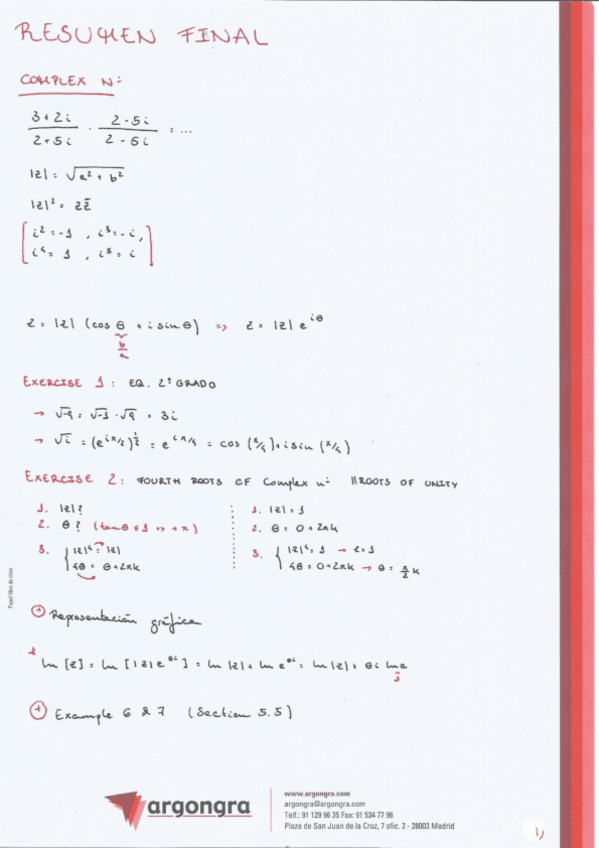 RESUMEN FINAL
COMPLEX Nº
3+2i / 2+5i · 2-5i / 2-5i = ...
|z| = √a²+b²
|z|² = z z̄
[ i² = -1 , i³ = -i,
i⁴ = 1 , i⁵ = i ]
z = |z| (cos θ + i sin θ) => z = |z| e^iθ
b/a
EXERCISE 1: EQ. 2º GRADO
→ √-9 = √-1 · √9 = 3i
→ √i = (e^iπ/2)^1/2 = e^iπ/4 = cos (π/4) + i sin (π/4)
EXERCISE 2: FOURTH ROOTS OF Complex nº || ROOTS OF UNITY
1. |z|? 1. |z| = 1
2. θ? (tan θ ± 1 => + π) 2. θ = 0 + 2πk
3. { |z|⁴ = |z| 3. { |z|⁴ = 1 → z = 1
4θ = θ + 2πk 4θ = 0 + 2πk → θ = π/2 k
+ Representación gráfica
* ln [z] = ln [|z| e^θi] = ln |z| + ln e^θi = ln |z| + θi ln e
1
+ Example 6 & 7 (Section 5.5)
Papel libre de cloro
argongra
www.argongra.com
argongra@argongra.com
Telf.: 91 129 96 35 Fax: 91 534 77 96
Plaza de San Juan de la Cruz, 7 ofic. 2 - 28003 Madrid
1)